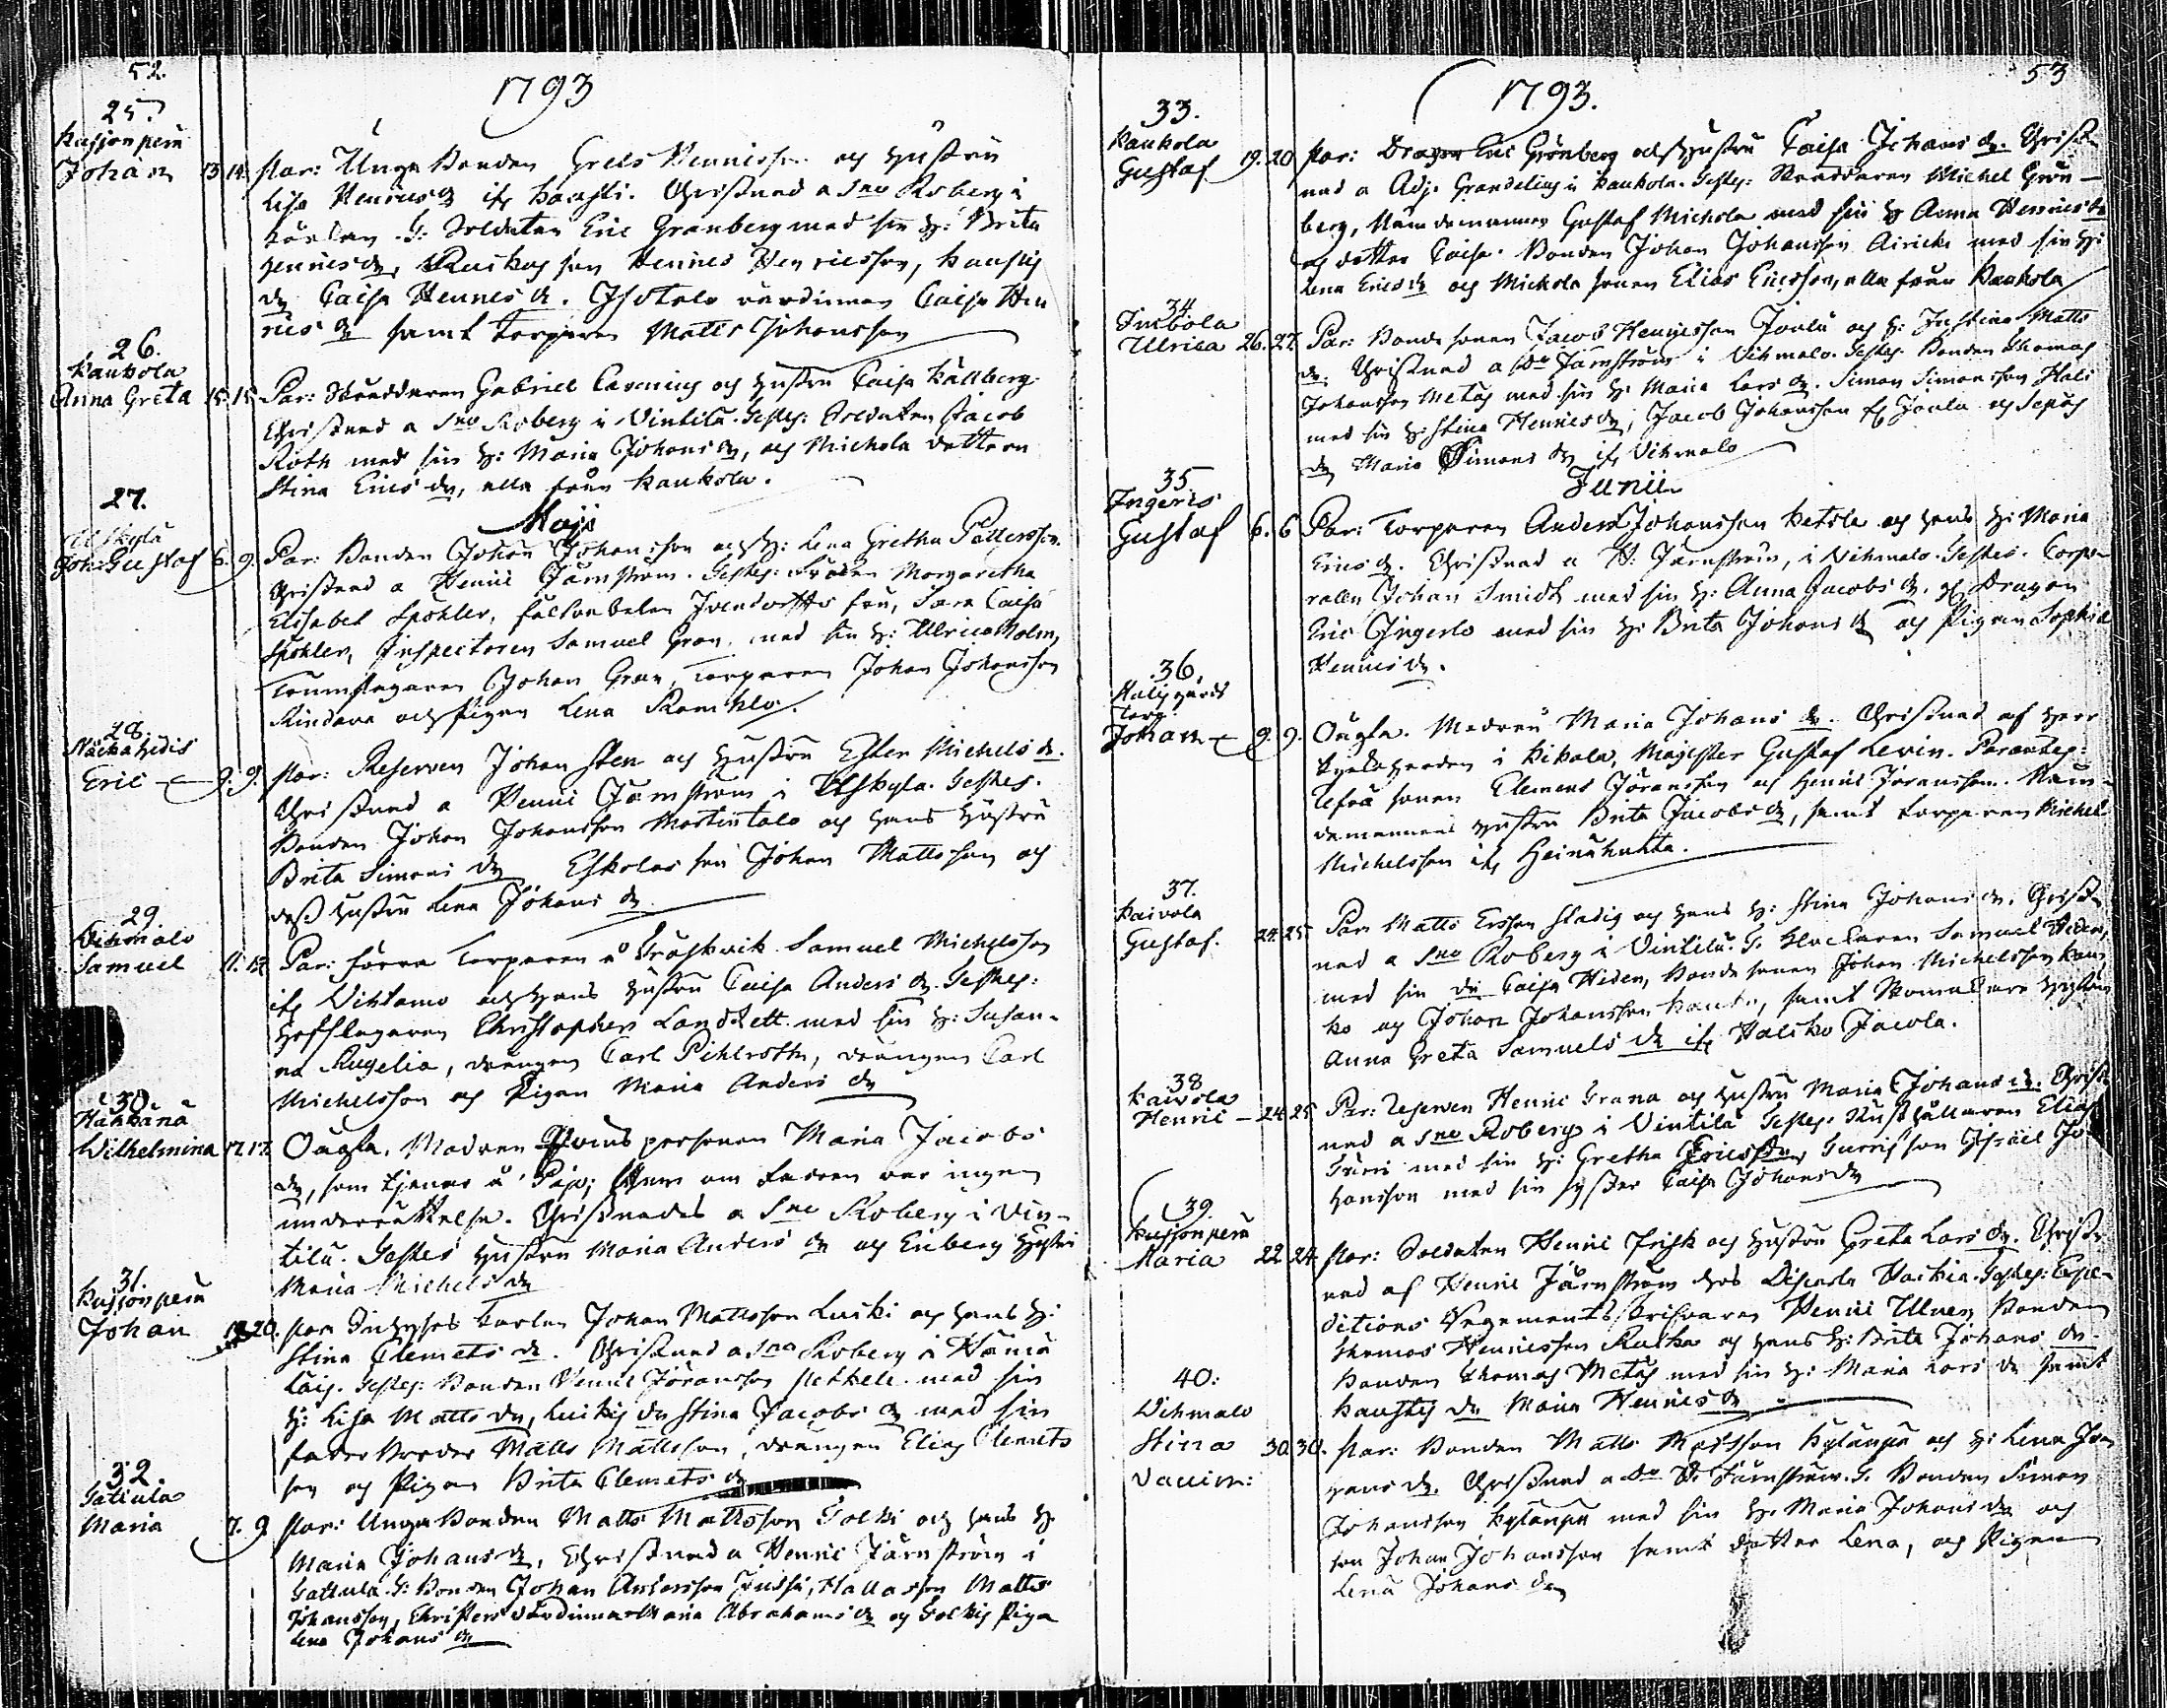 52.
1793
25.
Kusjonperä
Johan 13 14. Par: Unga Bonden Grels Hennicsson och Hustru
Lisa Henrics dr ifr Hausti. Christnad a Sno Roberg i
Kyrkan. T: Soldaten Eric Granberg med sin H: Brita
Hennics dr, son Hennes Henricsson, Haustis
dr Caisa Hennes dr. Isotalo värdinnan Caisa Hen
rics dr samt torparen Matts Johansson
26.
Kaukola
Anna Greta 15. 15. Par: Skräddaren Gabriel Cavenius och Hustru Caisa Källberg
Christnad a Sno Roberg i Vintilä. Testes: Soldaten Jacob
Roth med sin H: Maria Johans dr, och Mickola dottern
Stina Erics dr, alla från Kaukola.
Maji
27.
Ulskylä
Joh: Gustaf 6. 9. Par: Bonden Johan Johansson och H: Lena Gretha Pattersson.
Christnad a Henric Järnström. Testes: Margaretha
Elisabet Spohler, fru, Sara Caisa
Spohler, Inspectoren Samuel Gran med sin H: Ulrica Holm,
Trumslagaren Johan Gran, Torparen Johan Johansson
Rindara och Pigan Lena Ramklo.
28.
Eric 9. 9. Par: Reserven Johan Sten och Hustru Ester Michels dr.
Christnad a Henric Järnström i Ulskyla. Testes.
Bonden Johan Johansson Martintalo och hans Hustru
Brita Simons dr Eskolas son Johan Mattsson och
dess hustru Lena Johans dr
29.
Vihmalo
Samuel 11. 12. Par: förra Torparen å Träskvik Samuel Michelsson
ifr Vihtamo och hans Hustru Caisa Anders dr. Testes:
Hofslagaren Christopher Landtett med sin H: Susan-
na Rugelia, drängen Carl Pihlroth, drängen Carl
Michelsson och Pigan Maria Anders dr
30.
Hakkänä
Wilhelmina 17. 17. Oägta. Modren personen Maria Jacobs
dr, som tjenar å Pajo; Men om fadren var ingen
underrättelse. Christnades a Sno Roberg i Vin-
tilä. Testes Hustru Maria Anders dr och Enberg Hustru
Maria Michels dr
31.
Kusjonperä
Johan 19 20. Par Inhyses karlen Johan Mattsson Luski och hans H:
Stina Clemets dr. Christnad a Sno Roberg i
Testes: Bonden Henric Jöransson med sin
H: Lisa Matts dr, Luskis dr Stina Jacobs dr med sin
faderbroder Matts Mattsson, drängen Elias Clemets
son och Pigan Brita Clemets dr
32.
Gattula
Maria 7. 9 Par: Unga Bonden Matts Mattsson Tolki och hans H
Maria Johans dr, Christnad a Henric Järnström i
Gattula. T: Bonden Johan Andersson Jussi, Hallas son Matts
Johansson, Christers värdinna Maria Abrahams dr och Tolkis Piga
Lena Johans dr
53
1793.
33.
Kaukola
Gustaf 19. 20 Par: Dragon Eric Grönberg och Hustru Caisa Johans dr. Christ
nad a Adj. Grandelius i Kaukola. Testes: Skräddaren Michel Grön-
berg, Nämdemannen Gustaf Mickola med sin H Anna Henrics dr
och dotter Caisa. Bonden Johan Johansson Airicko med sin H:
Lena Erics dr och Mickola sonen Elias Ericsson, alla från Kaukola
34
Inkola
Ulrica 26. 27. Par: Bonde sonen Jacob Hennicsson Joula och H: Justina Matts
dr. Christnad a Dn Järnström i Vihmalo. Testes. Bonden Thomas
Johansson Metas med sin H: Maria Lars dr. Simon Simonsson Hali
med sin H: Stina Hennics dr; Jacob Johansson fr Joula och Sepäs
dr Maria Simons dr ifr Vihmalo
Junii
35
Ingeris
Gustaf 6. 6 Par: Torparen Anders Johansson Ketola och hans H: Maria
Erics dr. Christnad a H: Järnström, i Vihmalo. Testes. Corpo-
ralen Johan Smidt med sin H: Anna Jacobs dr. och Dragon
Eric Ingerlo med sin H: Brita Johans dr och Pigan Sophia
Hennics dr.
36.
Torp.
Johan 9. 9. Oägta. Modren Maria Johans dr. Christnad af Herr
Kyrkoherden i Kikala, Magister Gustaf Levin. Parantes:
sonen Clemens Jöransson och Henric Jöransson. Näm-
demannens Hustru Brita Jacobs dr, samt torparen Michel
Michelsson ifr Heinähuhta.
37.
Kaivola
Gustaf. 24. 25 Par Matts Ersson Stadig och hans H: Stina Johans dr. Christ
nad a Sno Roberg i Vintilä. T. Klockaren Samuel Hiden,
med sin dr Caisa Hiden, Bonde sonen Johan Michelsson Kau
ko och Johan Johansson Kauko, samt Hustru
Anna Greta Samuels dr ifr Halikko Jacola.
38
Kaivola
Henric 24 25 Par: Reserven Henric Grana och Hustru Maria Johans dr. Christ
nad a Sno Roberg i Vintilä Testes. Rusthållaren Elias
Turri med sin H: Gretha Erics dr, Turris son Israël Jo
hansson med sin syster Caisa Johans dr
39.
Kusjonperä
Maria 22 24 Par: Soldaten Henric Frisk och Hustru Greta Lars dr. Christ
nad af Henric Järnström hos Testes: Expe-
ditions Regements skrifvaren Henric Ulner, Bonden
Thomas Hennicsson Rutka och hans H: Brita Johans dr.
Bonden Thomas Metas med sin H: Maria Lars dr samt
Haustis dr Maria Hennics dr
40:
Vihmalo
Stina 30. 30. Par: Bonden Matts Mattsson Kylänpä och H: Lena Jo
hans dr. Christnad a Dn H. Järnström. T. Bonden Simon
Johansson Kylänpä med sin H. Maria Johans dr och
son Johan Johansson samt dotter Lena, och Pigan
Lena Johans dr